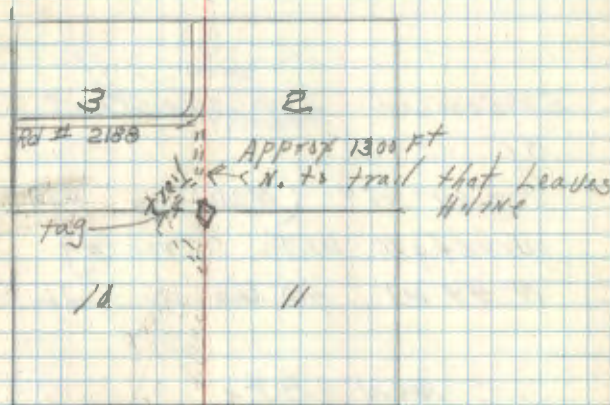 3
2
Rd # 2188
Approx 1300 Ft
N. to trail that Leaves
Hiline
Trail
tag
10
11